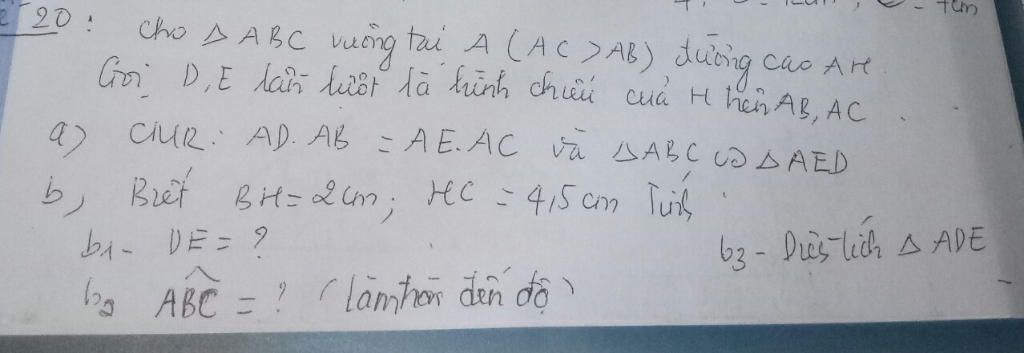 20: Cho △ ABC vuông tại A (AC > AB) đường cao AH
Gọi D, E lần lượt là hình chiếu của H trên AB, AC.
a) CMR: AD.AB = AE.AC và △ABC ∽ △AED
b, Biết BH = 2cm; HC = 4,5 cm Tính
b1- DE = ?
b3 - Diện tích △ ADE
b2 ABC = ? (làm tròn đến độ)